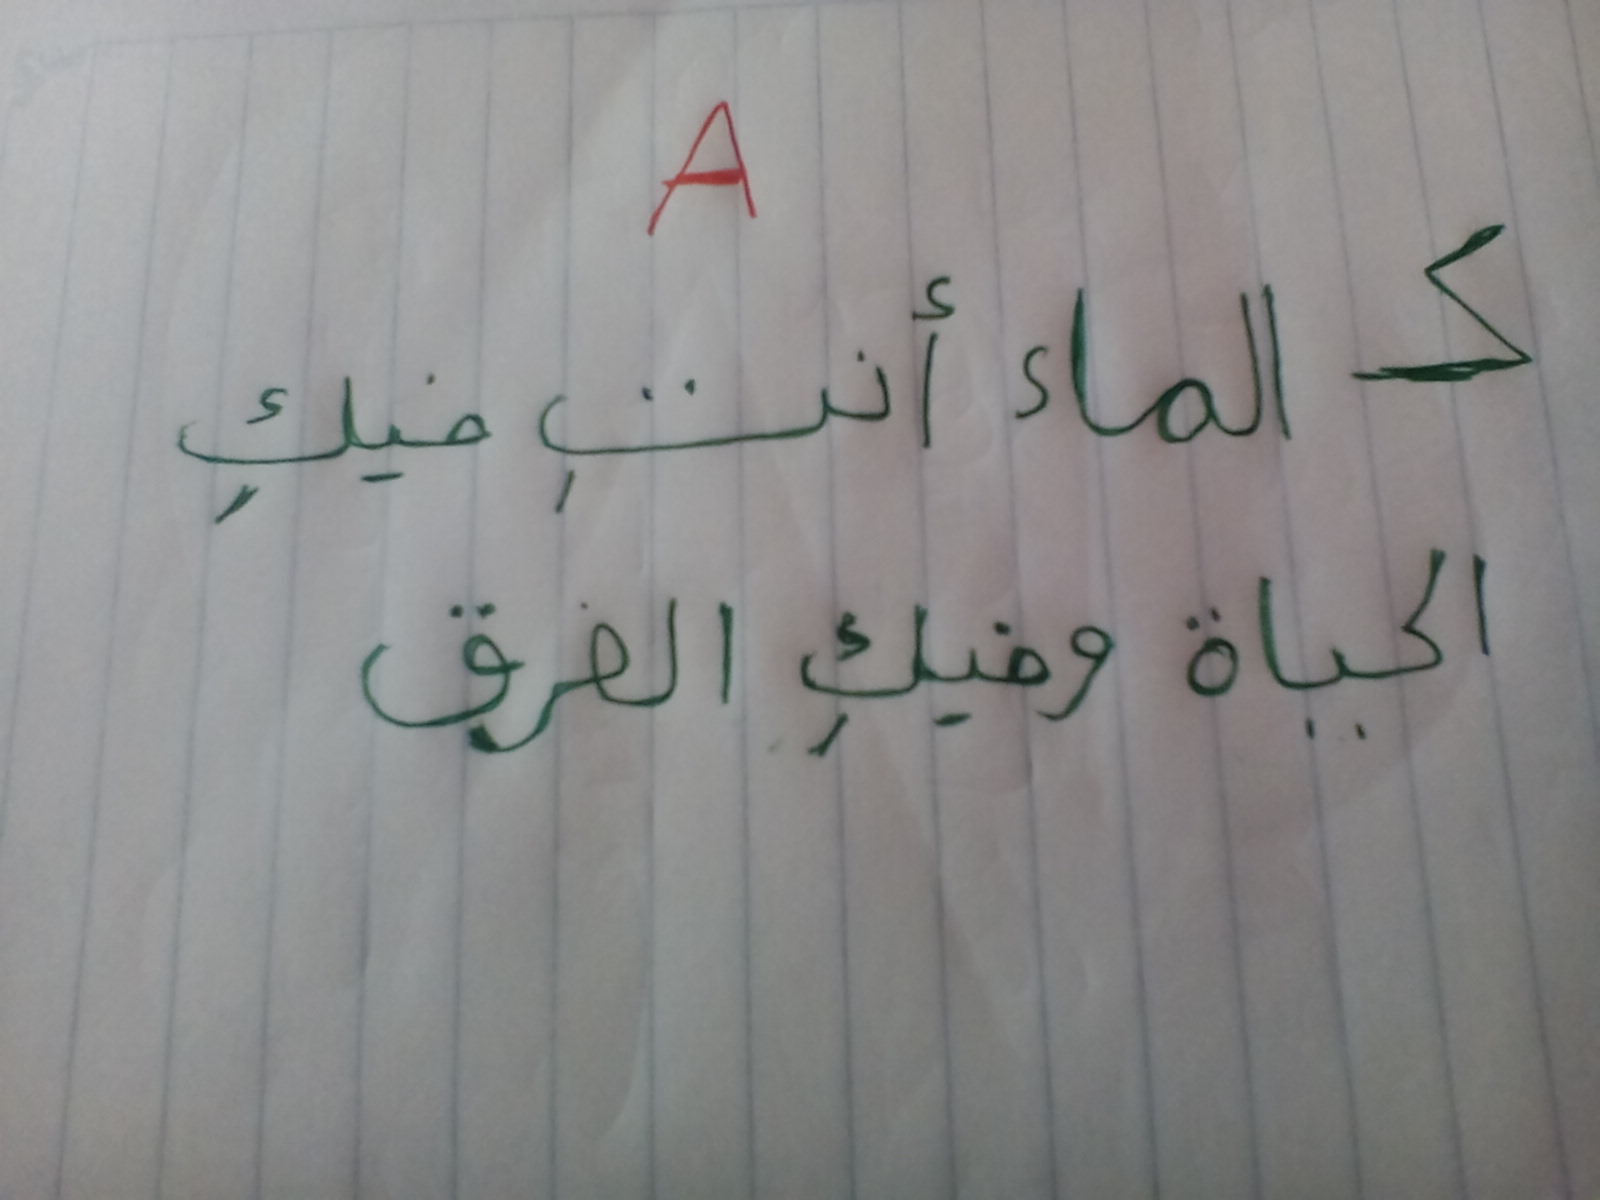 A
كـ الماء أنتِ فيكِ
الحياة وفيكِ الفرق